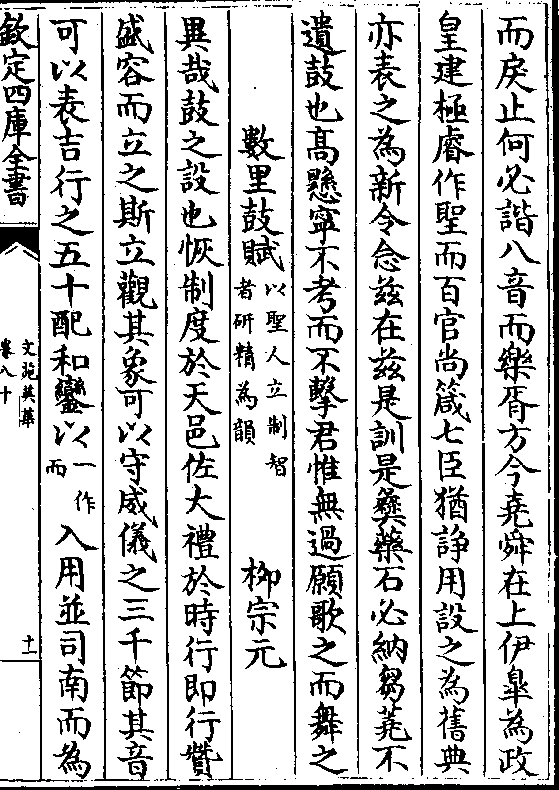 而戾止何必諧八音而樂胥方今堯舜在上伊臯為政
皇建極睿作聖而百官尚箴七臣猶諍用設之為舊典
亦表之為新令念茲在茲是訓是彞藥石必納芻蕘不
遺鼓也高懸寧不考而不擊君惟無過願歌之而舞之
數里鼓賦以聖人立制智者研精為韻 柳宗元
異哉鼓之設也恢制度於天邑佐大禮於時行即行贊
盛容而立之斯立觀其象可以守威儀之三千節其音
可以表吉行之五十配和鑾以一作而入用並司南而為
欽定四庫全書
文苑英華
卷八十
十一